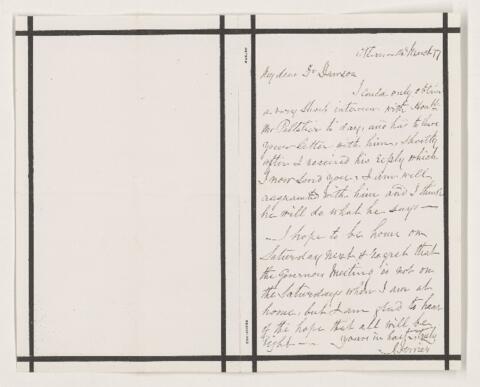 March 77
My dear Dr Dawson
I could only obtain
a very short interview with Honble
Mr Pelletier to day, and had to leave
your letter with him, shortly
after I received his reply which
I now send you. I am well
acquainted with him and I think
he will do what he says —
— I hope to be home on
Saturday next & regret that
the Governors Meeting is not on
the Saturdays when I am at
home, but I am glad to hear
of the hope that all will be
right — yours in haste truly